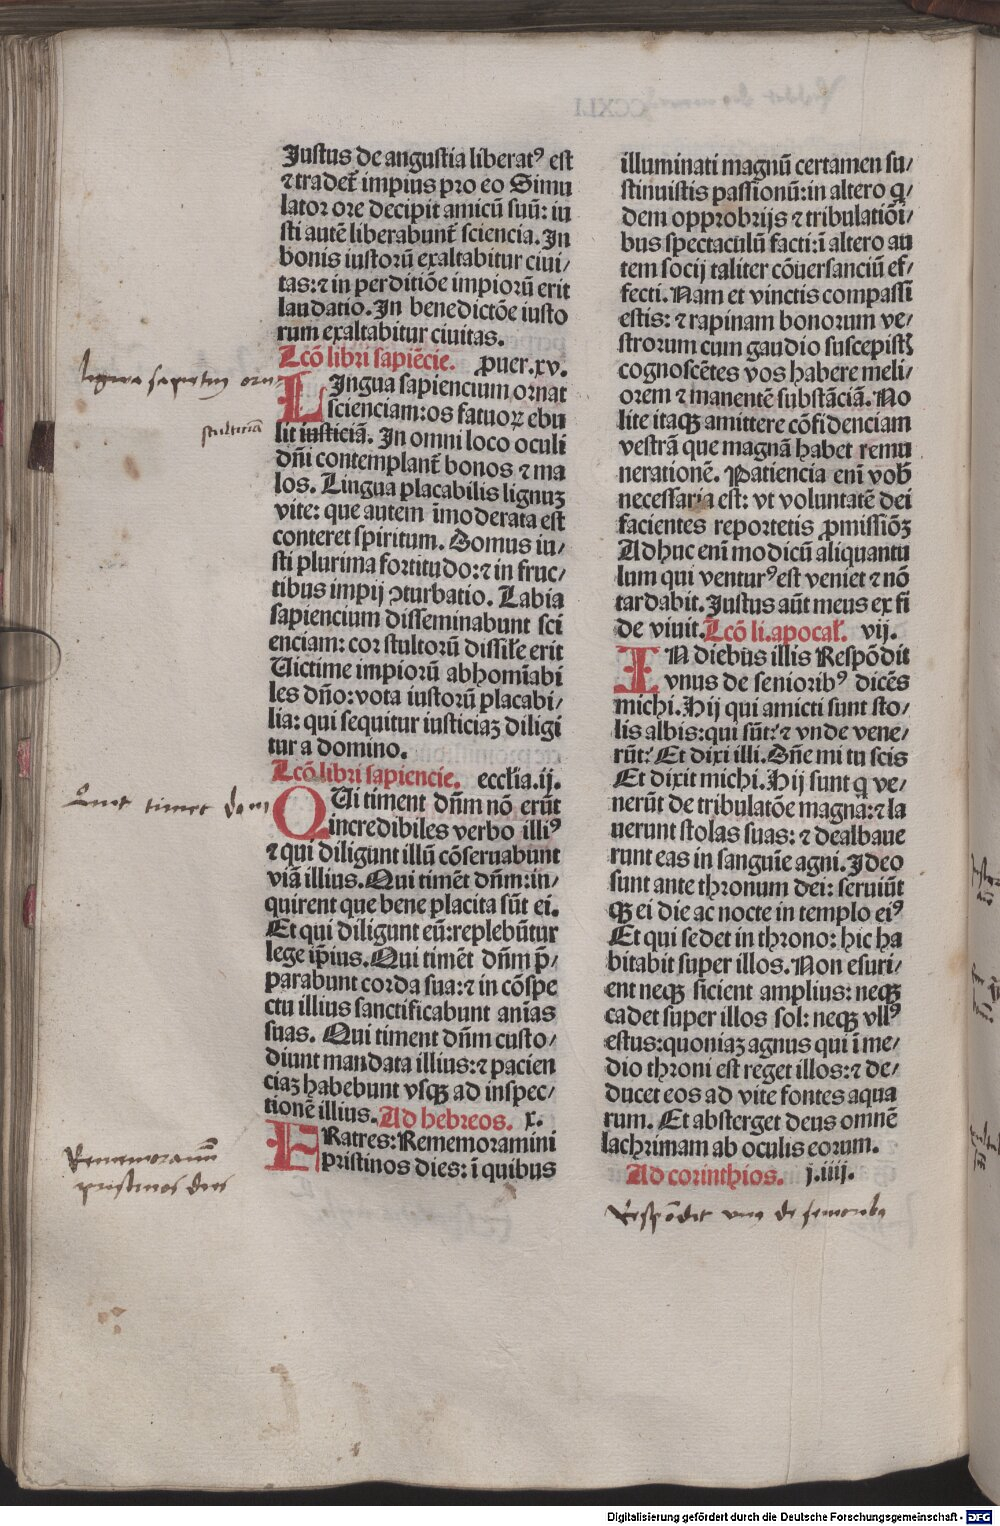 Justus de angustia liberatꝰ est
⁊ tradet̃ impius pro eo Simu
lator ore decipit amicũ suũ: iu
sti autẽ liberabunt̃ sciencia. In
bonis iustorũ exaltabitur ciui/
tas:⁊ in perditiõe impiorũ erit
laudatio. In benedictõe iusto
rum exaltabitur ciuitas.
Lcõ libri sapiẽcie. ꝓuer.xv.
LIngua sapiencium ornat
scienciam:os fatuoꝝ ebu
lit iusticiã. In omni loco oculi
dñi contemplant̃ bonos ⁊ ma
los. Lingua placabilis lignuʒ
vite: que autem ĩmoderata est
conteret spiritum. Domus iu/
sti plurima fortitudo:⁊ in fruc/
tibus impij ↄturbatio. Labia
sapiencium disseminabunt sci
enciam: cor stultorũ dissiłe erit
Uictime impiorũ abhomĩabi
les dño:vota iustorũ placabi/
lia: qui sequitur iusticiaʒ diligi
tur a domino.
Lcõ libri sapiencie. eccłia.ij.
QUi timent dñm nõ erũt
incredibiles verbo illiꝰ
⁊ qui diligunt illũ cõseruabunt
viã illius. Qui timẽt dñm:in/
quirent que bene placita sũt ei.
Et qui diligunt eũ:replebũtur
lege ip̃ius. Qui timẽt dñm p̃/
parabunt corda sua:⁊ in cõspe
ctu illius sanctificabunt anĩas
suas. Qui timent dñm custo/
diunt mandata illius:⁊ pacien
ciaʒ habebunt vsqꝫ ad inspec/
tionẽ illius. Ad hebreos. x.
FRatres: Rememoramini
pristinos dies: ĩ quibus
illuminati magnũ certamen su/
stinuistis passionũ:in altero q/
dem opprobrijs ⁊ tribulatiõi/
bus spectaculũ facti:ĩ altero au
tem socij taliter cõuersanciũ ef/
fecti. Nam et vinctis compassi
estis: ⁊ rapinam bonorum ve/
strorum cum gaudio suscepistꝭ
cognoscẽtes vos habere meli/
orem ⁊ manentẽ substãciã. No
lite itaqꝫ amittere cõfidenciam
vestrã que magnã habet remu
nerationẽ. Patiencia enĩ vob̃
necessaria est: vt voluntatẽ dei
facientes reportetis ꝓmissiõʒ
Adhuc enĩ modicũ aliquantu
lum qui venturꝰ est veniet ⁊ nõ
tardabit. Justus aũt meus ex fi
de viuit. Lcõ li.apocał. vij.
IN diebus illis Respõdit
vnus de senioribꝰ dicẽs
michi. Hij qui amicti sunt sto/
lis albis:qui sũt: ⁊ vnde vene/
rũt: Et dixi illi. Dñe mi tu scis
Et dixit michi. Hij sunt q ve/
nerũt de tribulatõe magna:⁊ la
uerunt stolas suas: ⁊ dealbaue
runt eas in sanguĩe agni. Ideo
sunt ante thronum dei: seruiũt
qꝫ ei die ac nocte in templo eiꝰ
Et qui sedet in throno: hic ha
bitabit super illos. Non esuri/
ent neqꝫ sicient amplius: neqꝫ
cadet super illos sol: neqꝫ vllꝰ
estus:quoniaʒ agnus qui ĩ me/
dio throni est reget illos:⁊ de/
ducet eos ad vite fontes aqua
rum. Et absterget deus omnẽ
lachrimam ab oculis eorum.
Ad corinthios. j.iiij.
stulticiã
timet
pristinos dies
Digitalisierung gefördert durch die Deutsche Forschungsgemeinschaft - DFG